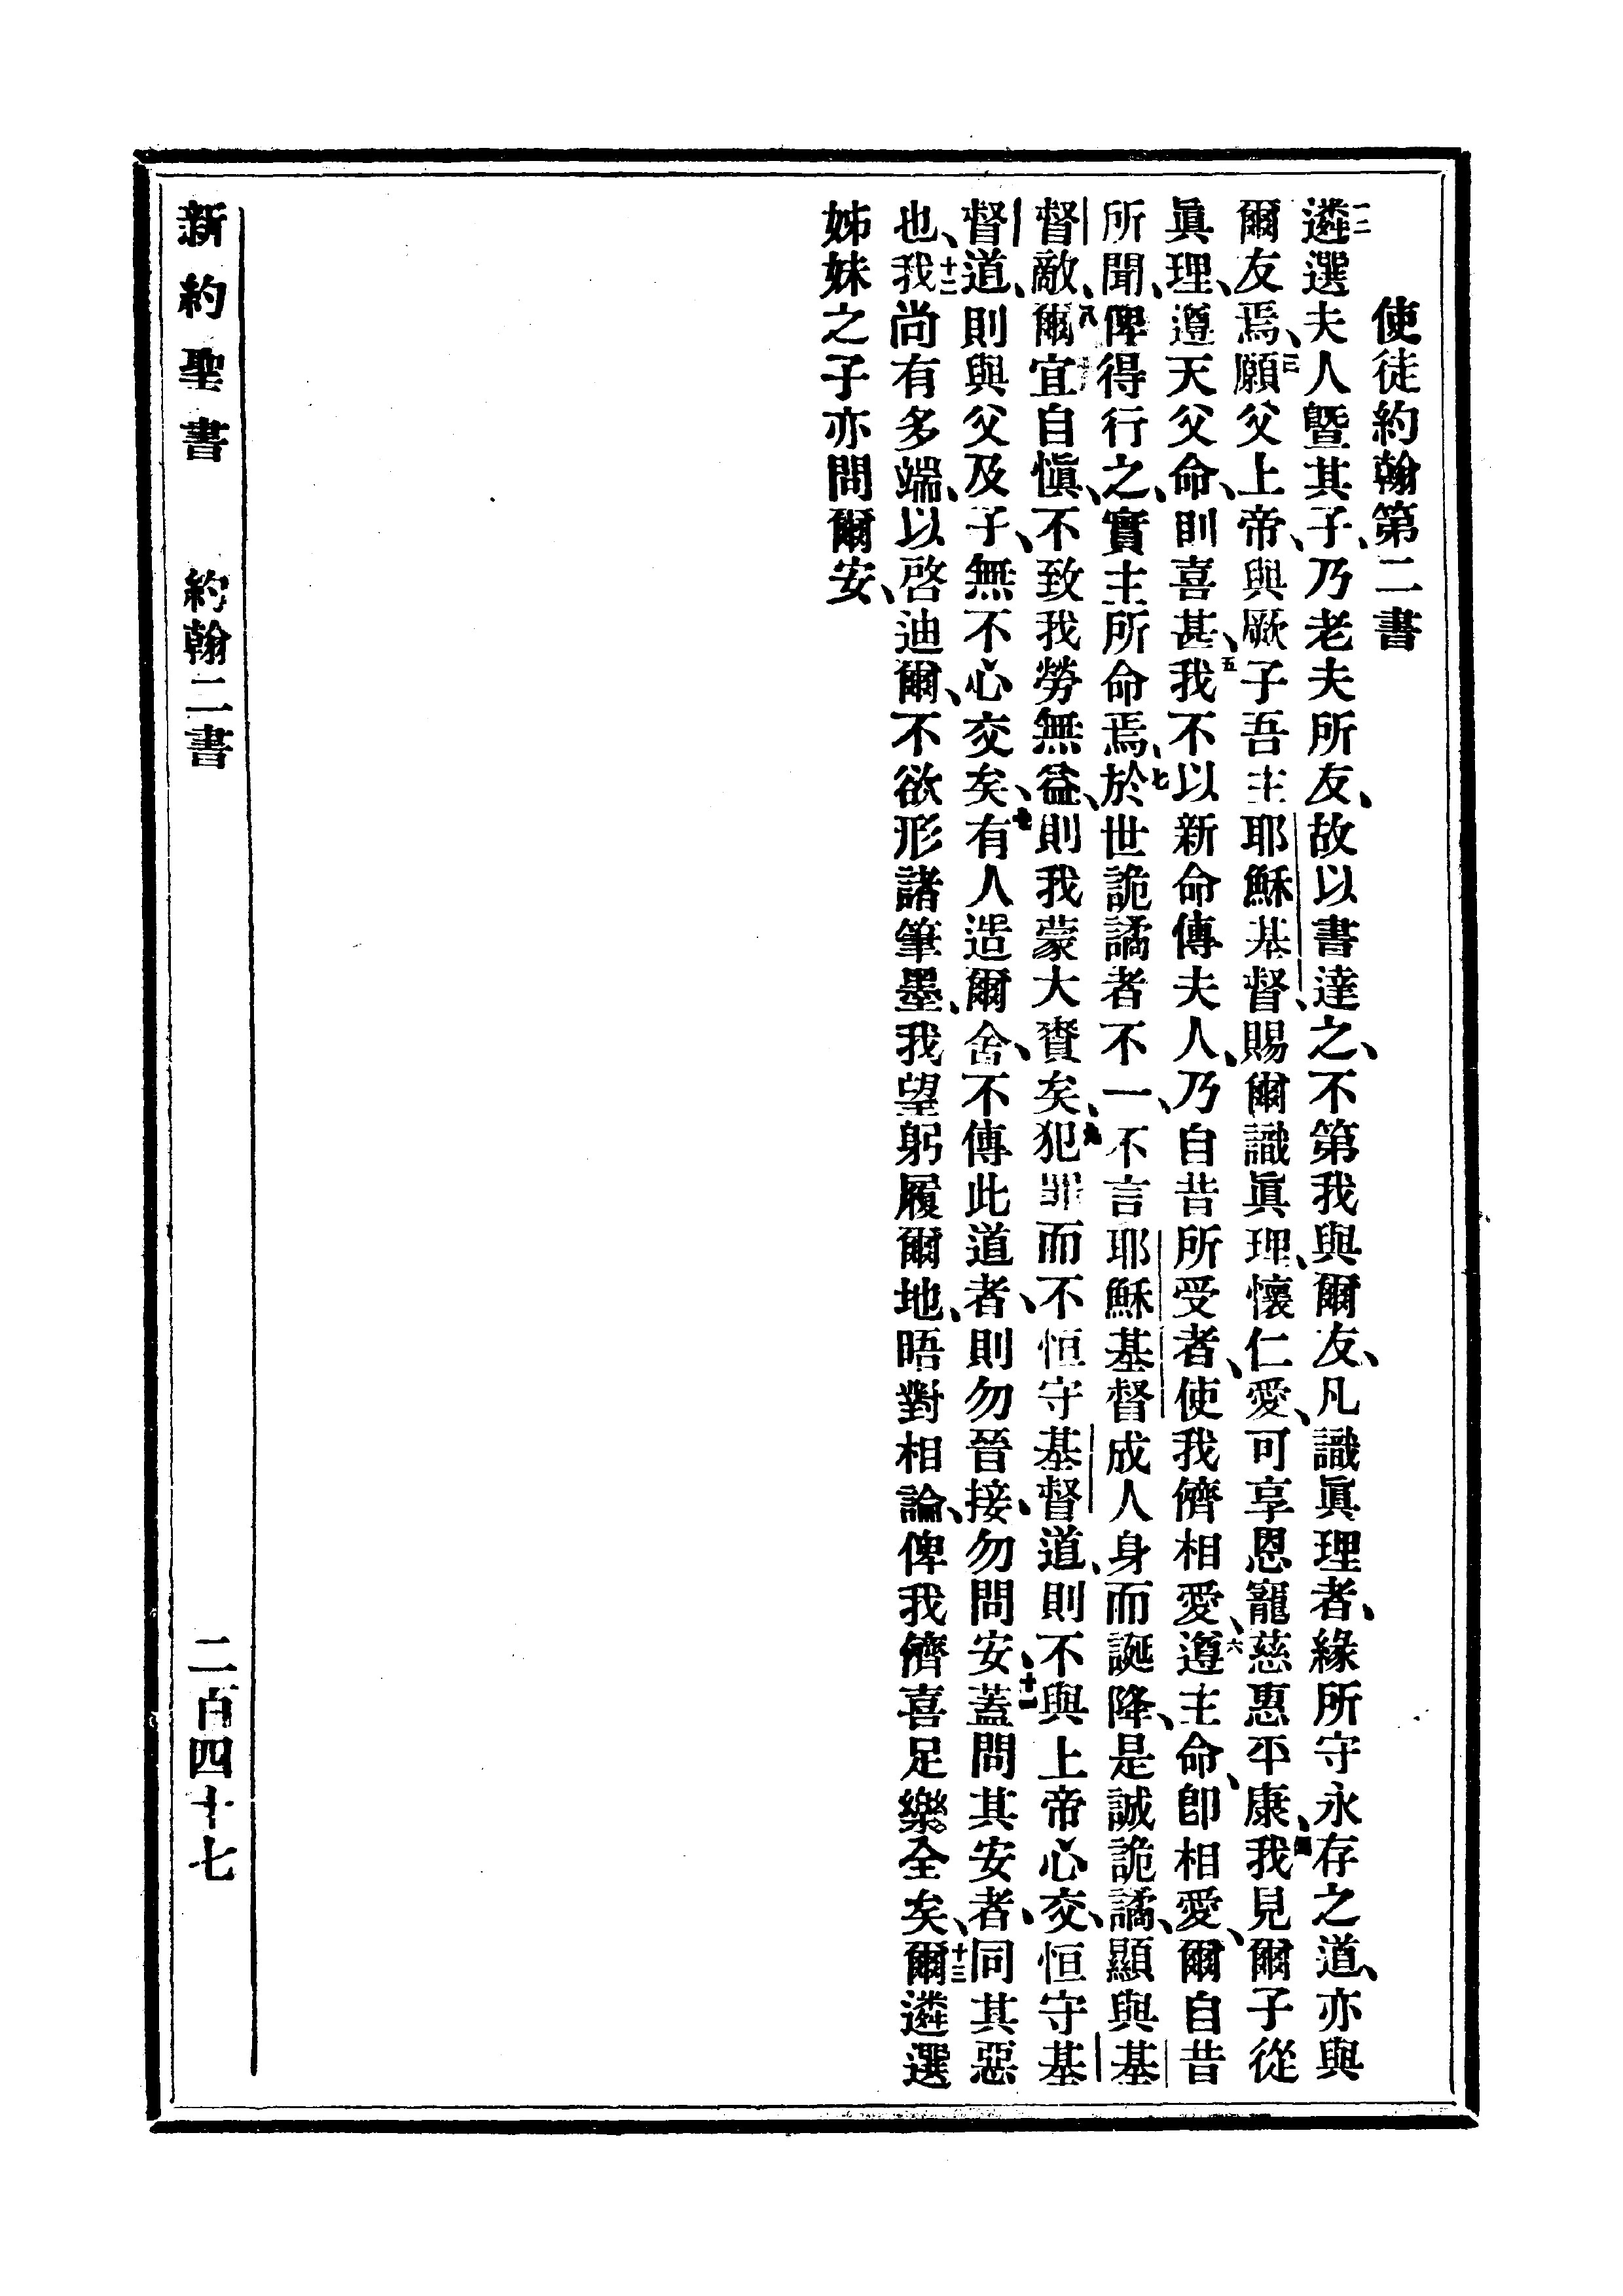 使徒約翰第二書
一二遴選夫人曁其子、乃老夫所友、故以書達之、不第我與爾友、凡識眞理者、緣所守永存之道、亦與
爾友焉、三願父上帝、與厥子吾主耶穌基督、賜爾識眞理、懷仁愛、可享恩寵慈惠平康、四我見爾子從
眞理、遵天父命、則喜甚、五我不以新命傳夫人、乃自昔所受者、使我儕相愛、六遵主命、卽相愛、爾自昔
所聞、俾得行之、實主所命焉、七於世詭譎者不一、不言耶穌基督成人身而誕降、是誠詭譎、顯與基
督敵、八爾宜自愼、不致我勞無益、則我蒙大賚矣、九犯罪而不恒守基督道、則不與上帝心交、恒守基
督道、則與父及子、無不心交矣、十有人造爾舍、不傳此道者、則勿晉接、勿問安、十一蓋問其安者、同其惡
也、十二我尚有多端、以啓迪爾、不欲形諸筆墨、我望躬履爾地、晤對相論、俾我儕喜足樂全矣、十三爾遴選
姊妹之子亦問爾安、
新約聖書　約翰二書　二百四十七